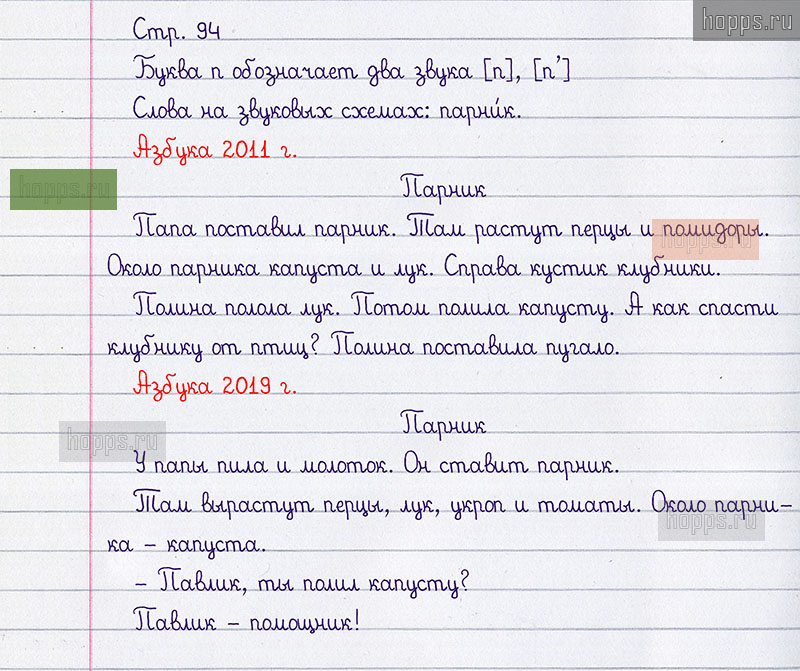 hopps.ru
Стр. 94
Буква п обозначает два звука [п], [п’]
Слова на звуковых схемах: парни́к.
Азбука 2011 г.
hopps.ru
Парник
Папа поставил парник. Там растут перцы и помидоры.
hopps.ru
Около парника капуста и лук. Справа кустик клубники.
Полина полола лук. Потом полила капусту. А как спасти
клубнику от птиц? Полина поставила пугало.
Азбука 2019 г.
Парник
hopps.ru
У папы пила и молоток. Он ставит парник.
Там вырастут перцы, лук, укроп и томаты. Около парни-
hopps.ru
ка – капуста.
– Павлик, ты полил капусту?
Павлик – помощник!